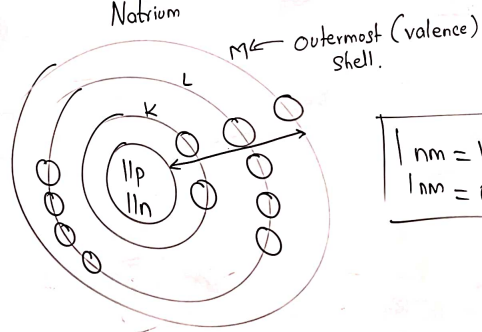 Natrium
M ← Outermost (valence)
shell.
L
K
11p
11n
1 nm =
1nm =